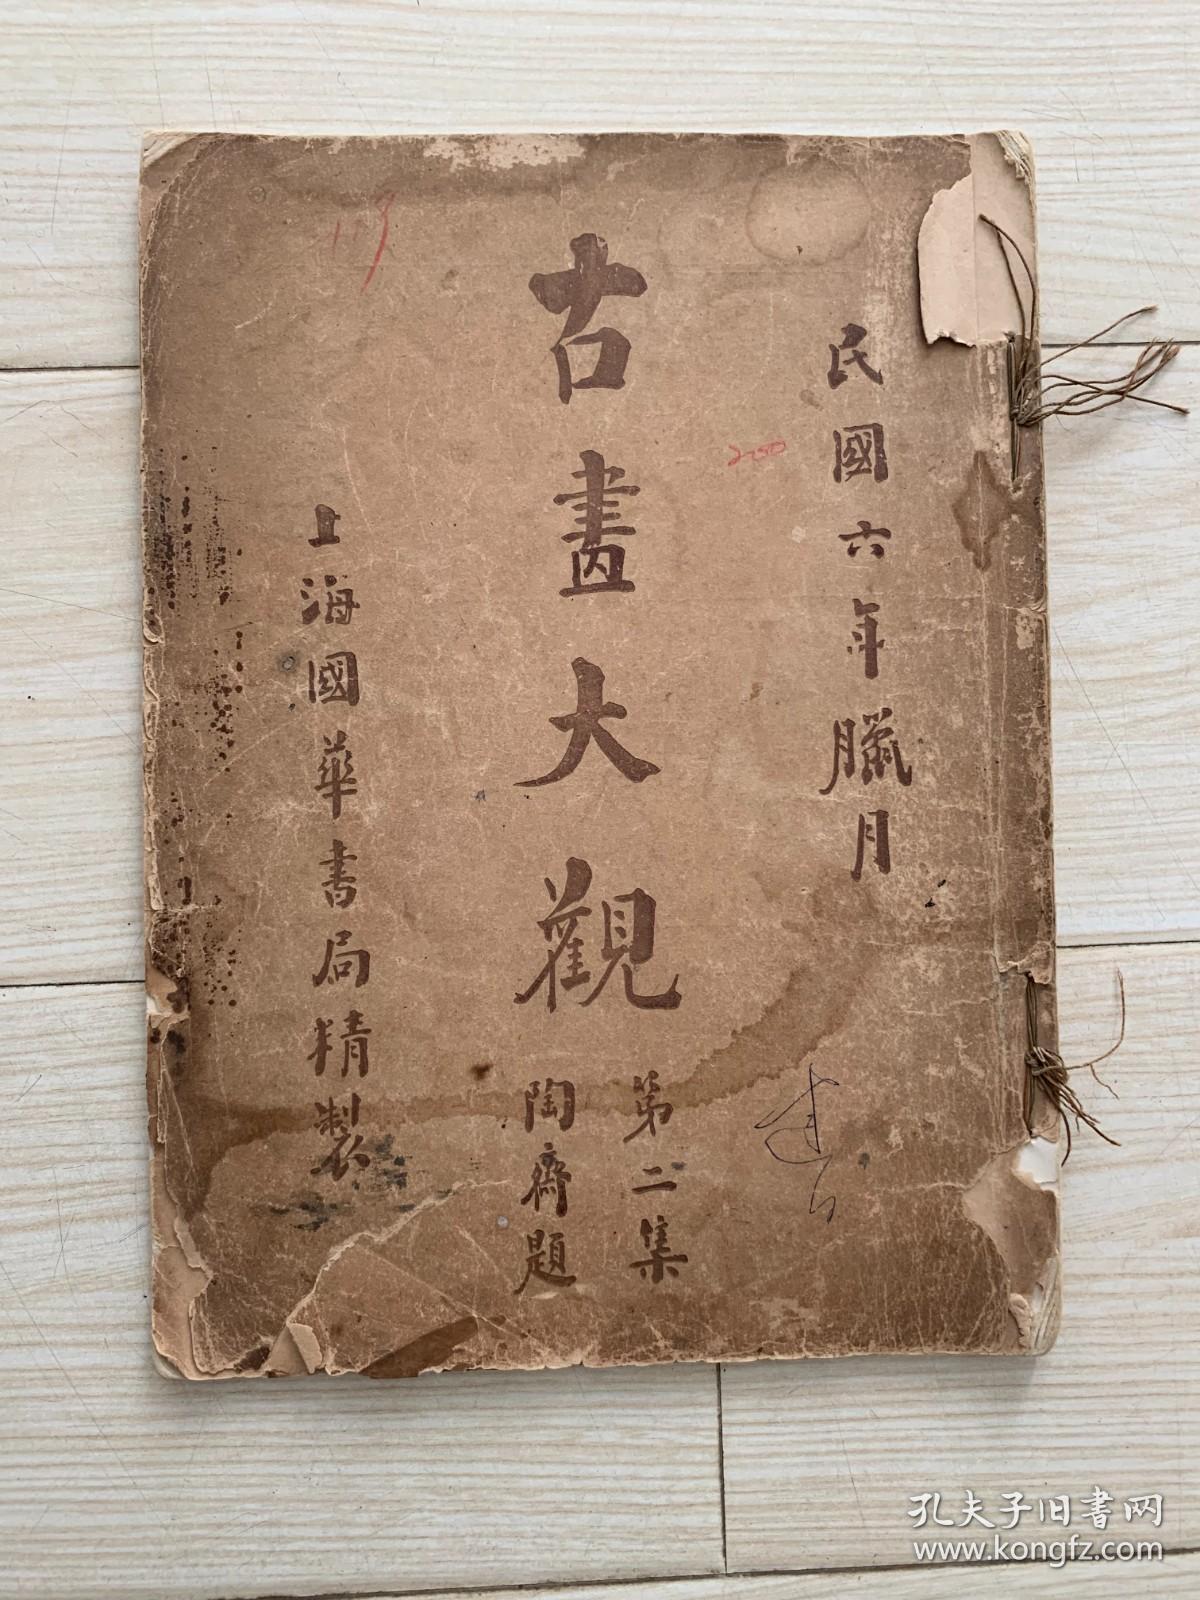 民國六年臘月
古畫大觀
第二集
陶齋題
上海國華書局精製
250
孔夫子旧书网
www.kongfz.com